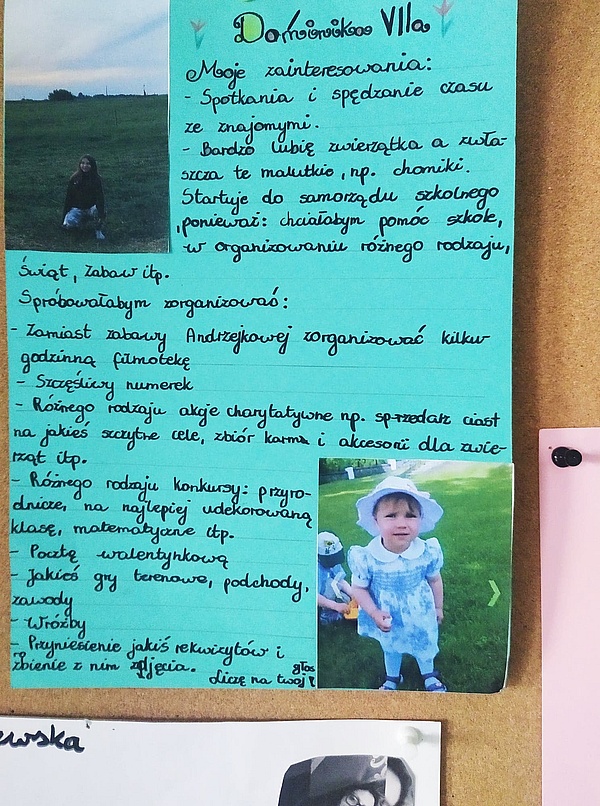 Dominika VIIa
Moje zainteresowania:
- Spotkania i spędzanie czasu
ze znajomymi.
- Bardzo lubię zwierzątka a zwła-
szcza te malutkie, np. chomiki.
Startuje do samorządu szkolnego
, ponieważ: chciałabym pomóc szkole,
w organizowaniu różnego rodzaju,
Świąt, Zabaw itp.
Spróbowałabym zorganizować:
- Zamiast zabawy Andrzejkowej zorganizować kilku-
godzinną filmotekę
- Szczęśliwy numerek
- Różnego rodzaju akcje charytatywne np. sprzedaż ciast
na jakieś szczytne cele, zbiór karma i akcesorii dla zwie-
rząt itp.
- Różnego rodzaju konkursy: przyro-
dnicze, na najlepiej udekorowaną
klasę, matematyczne itp.
- Pocztę walentynkową
- Jakieś gry terenowe, podchody,
zawody
- Wróżby
- Przyniesienie jakiś rekwizytów i
zbienie z nim zdjęcia.
Liczę na twój głos!
ewska